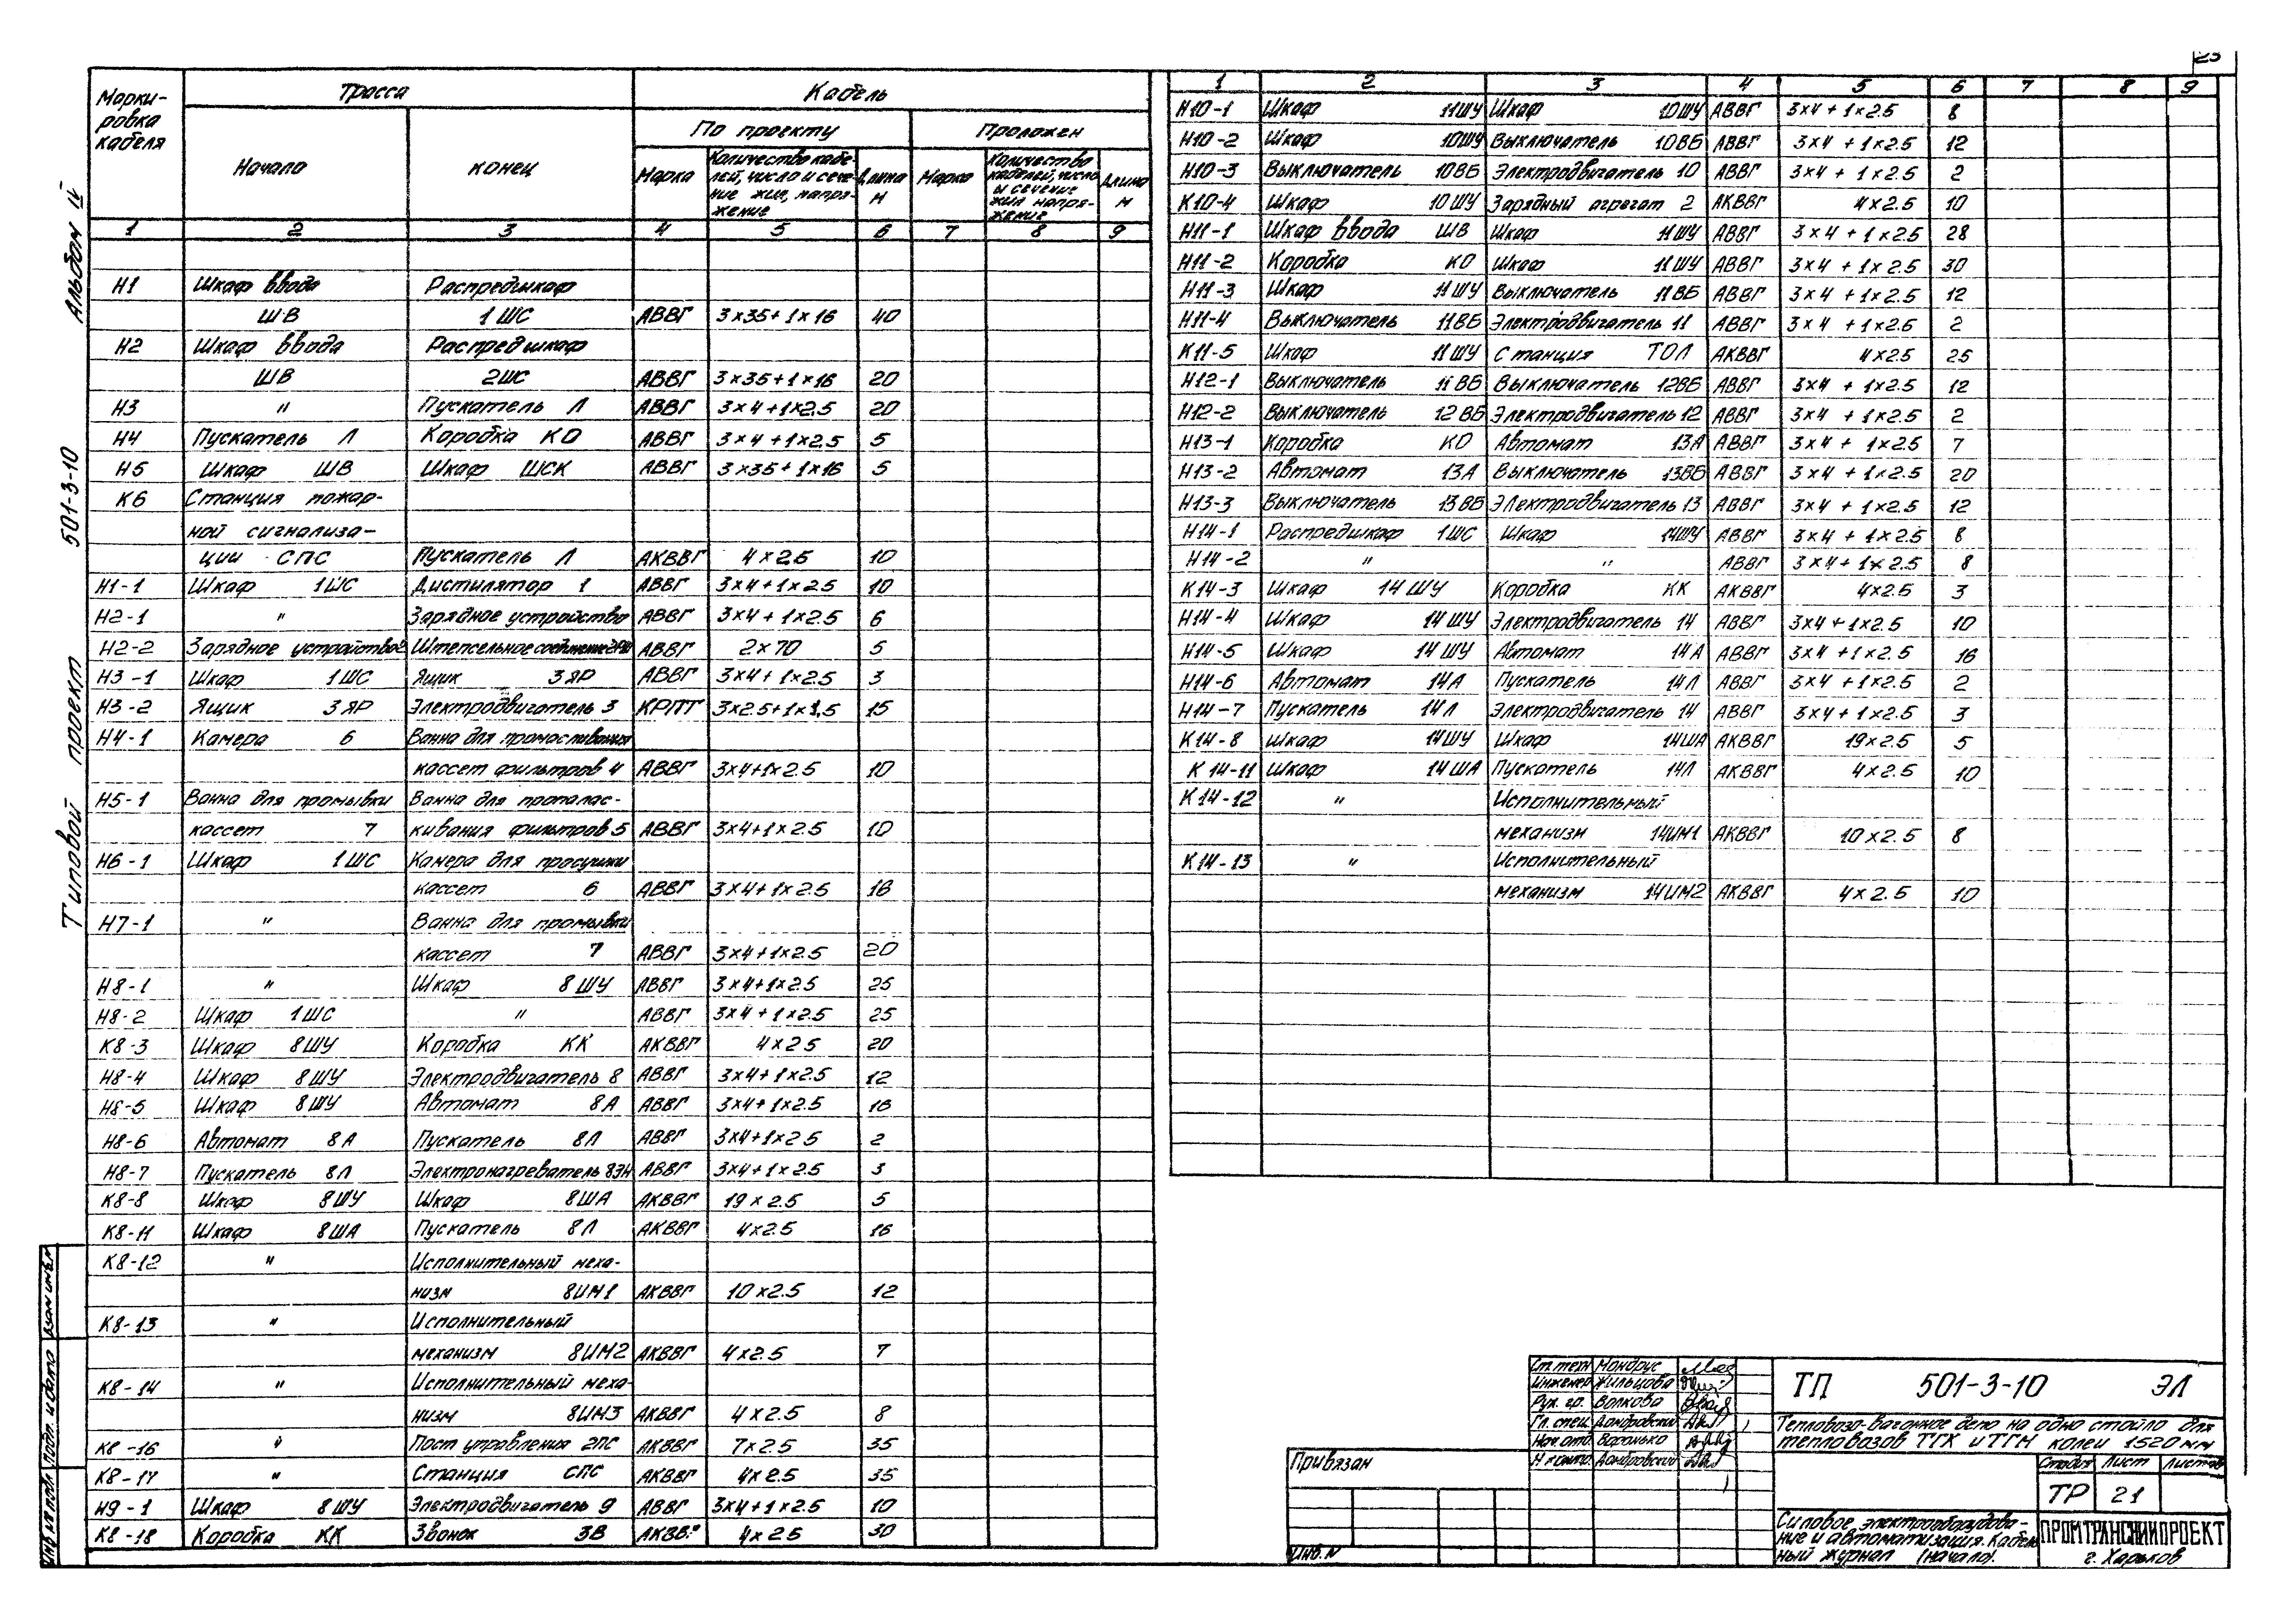 Альбом IV
501-3-10
Типовой проект
Марки-
ровка
кабеля
Трасса
Кабель
Начало
конец
По проекту
Проложен
Марка
Количество кабе-
лей, число и сече-
ние жил, напря-
жение
Длина
м
Марка
Количество
кабелей, число
и сечение
жил напря-
жение
Длина
м
1 2 3 4 5 6 7 8 9
Н1 Шкаф ввода Распредшкаф
ШВ 1 ШС АВВГ 3×35+1×16 40
Н2 Шкаф ввода Распредшкаф
ШВ 2ШС АВВГ 3×35+1×16 20
Н3 " Пускатель Л АВВГ 3×4+1×2.5 20
Н4 Пускатель Л Коробка КО АВВГ 3×4+1×2.5 5
Н5 Шкаф ШВ Шкаф ШСК АВВГ 3×35+1×16 5
К6 Станция пожар-
ной сигнализа-
ции СПС Пускатель Л АКВВГ 4×2.5 10
Н1-1 Шкаф 1ШС Дистилятор 1 АВВГ 3×4+1×2.5 10
Н2-1 " Зарядное устройство АВВГ 3×4+1×2.5 6
Н2-2 Зарядное устройство2 Штепсельное соединение АВВГ 2×70 5
Н3-1 Шкаф 1ШС Ящик 3ЯР АВВГ 3×4+1×2.5 3
Н3-2 Ящик 3ЯР Электродвигатель 3 КРПТ 3×2.5+1×1,5 15
Н4-1 Камера 6 Ванна для промасливания
кассет фильтров 4 АВВГ 3×4+1×2.5 10
Н5-1 Ванна для промывки Ванна для прополас-
кассет 7 кивания фильтров 5 АВВГ 3×4+1×2.5 10
Н6-1 Шкаф 1ШС Камера для просушки
кассет 6 АВВГ 3×4+1×2.5 16
Н7-1 " Ванна для промывки
кассет 7 АВВГ 3×4+1×2.5 20
Н8-1 " Шкаф 8ШУ АВВГ 3×4+1×2.5 25
Н8-2 Шкаф 1ШС " АВВГ 3×4+1×2.5 25
К8-3 Шкаф 8ШУ Коробка КК АКВВГ 4×2.5 20
Н8-4 Шкаф 8ШУ Электродвигатель 8 АВВГ 3×4+1×2.5 12
Н8-5 Шкаф 8ШУ Автомат 8А АВВГ 3×4+1×2.5 16
Н8-6 Автомат 8А Пускатель 8Л АВВГ 3×4+1×2.5 2
Н8-7 Пускатель 8Л Электронагреватель 8ЭН АВВГ 3×4+1×2.5 3
К8-8 Шкаф 8ШУ Шкаф 8ША АКВВГ 19×2.5 5
К8-11 Шкаф 8ША Пускатель 8Л АКВВГ 4×2.5 16
К8-12 " Исполнительный меха-
низм 8ИМ1 АКВВГ 10×2.5 12
К8-13 " Исполнительный
механизм 8ИМ2 АКВВГ 4×2.5 7
К8-14 " Исполнительный меха-
низм 8ИМ3 АКВВГ 4×2.5 8
К8-16 " Пост управления 2ПС АКВВГ 7×2.5 35
К8-17 " Станция СПС АКВВГ 4×2.5 35
Н9-1 Шкаф 8ШУ Электродвигатель 9 АВВГ 3×4+1×2.5 10
К8-18 Коробка КК Звонок ЗВ АКВВГ 4×2.5 30
23
1 2 3 4 5 6 7 8 9
Н10-1 Шкаф 11ШУ Шкаф 10ШУ АВВГ 3×4+1×2.5 8
Н10-2 Шкаф 10ШУ Выключатель 10ВБ АВВГ 3×4+1×2.5 12
Н10-3 Выключатель 10ВБ Электродвигатель 10 АВВГ 3×4+1×2.5 2
К10-4 Шкаф 10ШУ Зарядный агрегат 2 АКВВГ 4×2.5 10
Н11-1 Шкаф ввода ШВ Шкаф 11ШУ АВВГ 3×4+1×2.5 28
Н11-2 Коробка КО Шкаф 11ШУ АВВГ 3×4+1×2.5 30
Н11-3 Шкаф 11ШУ Выключатель 11ВБ АВВГ 3×4+1×2.5 12
Н11-4 Выключатель 11ВБ Электродвигатель 11 АВВГ 3×4+1×2.5 2
К11-5 Шкаф 11ШУ Станция ТОЛ АКВВГ 4×2.5 25
Н12-1 Выключатель 11ВБ Выключатель 12ВБ АВВГ 3×4+1×2.5 12
Н12-2 Выключатель 12ВБ Электродвигатель 12 АВВГ 3×4+1×2.5 2
Н13-1 Коробка КО Автомат 13А АВВГ 3×4+1×2.5 7
Н13-2 Автомат 13А Выключатель 13ВБ АВВГ 3×4+1×2.5 20
Н13-3 Выключатель 13ВБ Электродвигатель 13 АВВГ 3×4+1×2.5 12
Н14-1 Распредшкаф 1ШС Шкаф 14ШУ АВВГ 3×4+1×2.5 8
Н14-2 " " АВВГ 3×4+1×2.5 8
К14-3 Шкаф 14ШУ Коробка КК АКВВГ 4×2.5 3
Н14-4 Шкаф 14ШУ Электродвигатель 14 АВВГ 3×4+1×2.5 10
Н14-5 Шкаф 14ШУ Автомат 14А АВВГ 3×4+1×2.5 16
Н14-6 Автомат 14А Пускатель 14Л АВВГ 3×4+1×2.5 2
Н14-7 Пускатель 14Л Электродвигатель 14 АВВГ 3×4+1×2.5 3
К14-8 Шкаф 14ШУ Шкаф 14ША АКВВГ 19×2.5 5
К14-11 Шкаф 14ША Пускатель 14Л АКВВГ 4×2.5 10
К14-12 " Исполнительный
механизм 14ИМ1 АКВВГ 10×2.5 8
К14-13 " Исполнительный
механизм 14ИМ2 АКВВГ 4×2.5 10
Ст. техн Мондрус
Инженер Жильцова
Рук. гр. Волкова
Гл. спец. Домбровский
Нач. отд. Воронько
Н.контр. Домбровский
ТП 501-3-10 ЭЛ
Тепловозо-вагонное депо на одно стойло для
тепловозов ТГК и ТГМ колеи 1520 мм
Стадия Лист Листов
ТР 21
Силовое электрооборудова-
ние и автоматизация. Кабель
ный журнал (начало).
ПРОМТРАНСНИИПРОЕКТ
г. Харьков
Привязан
Инв. N
Взам инв. N
Подп. и дата
Инв. N подл